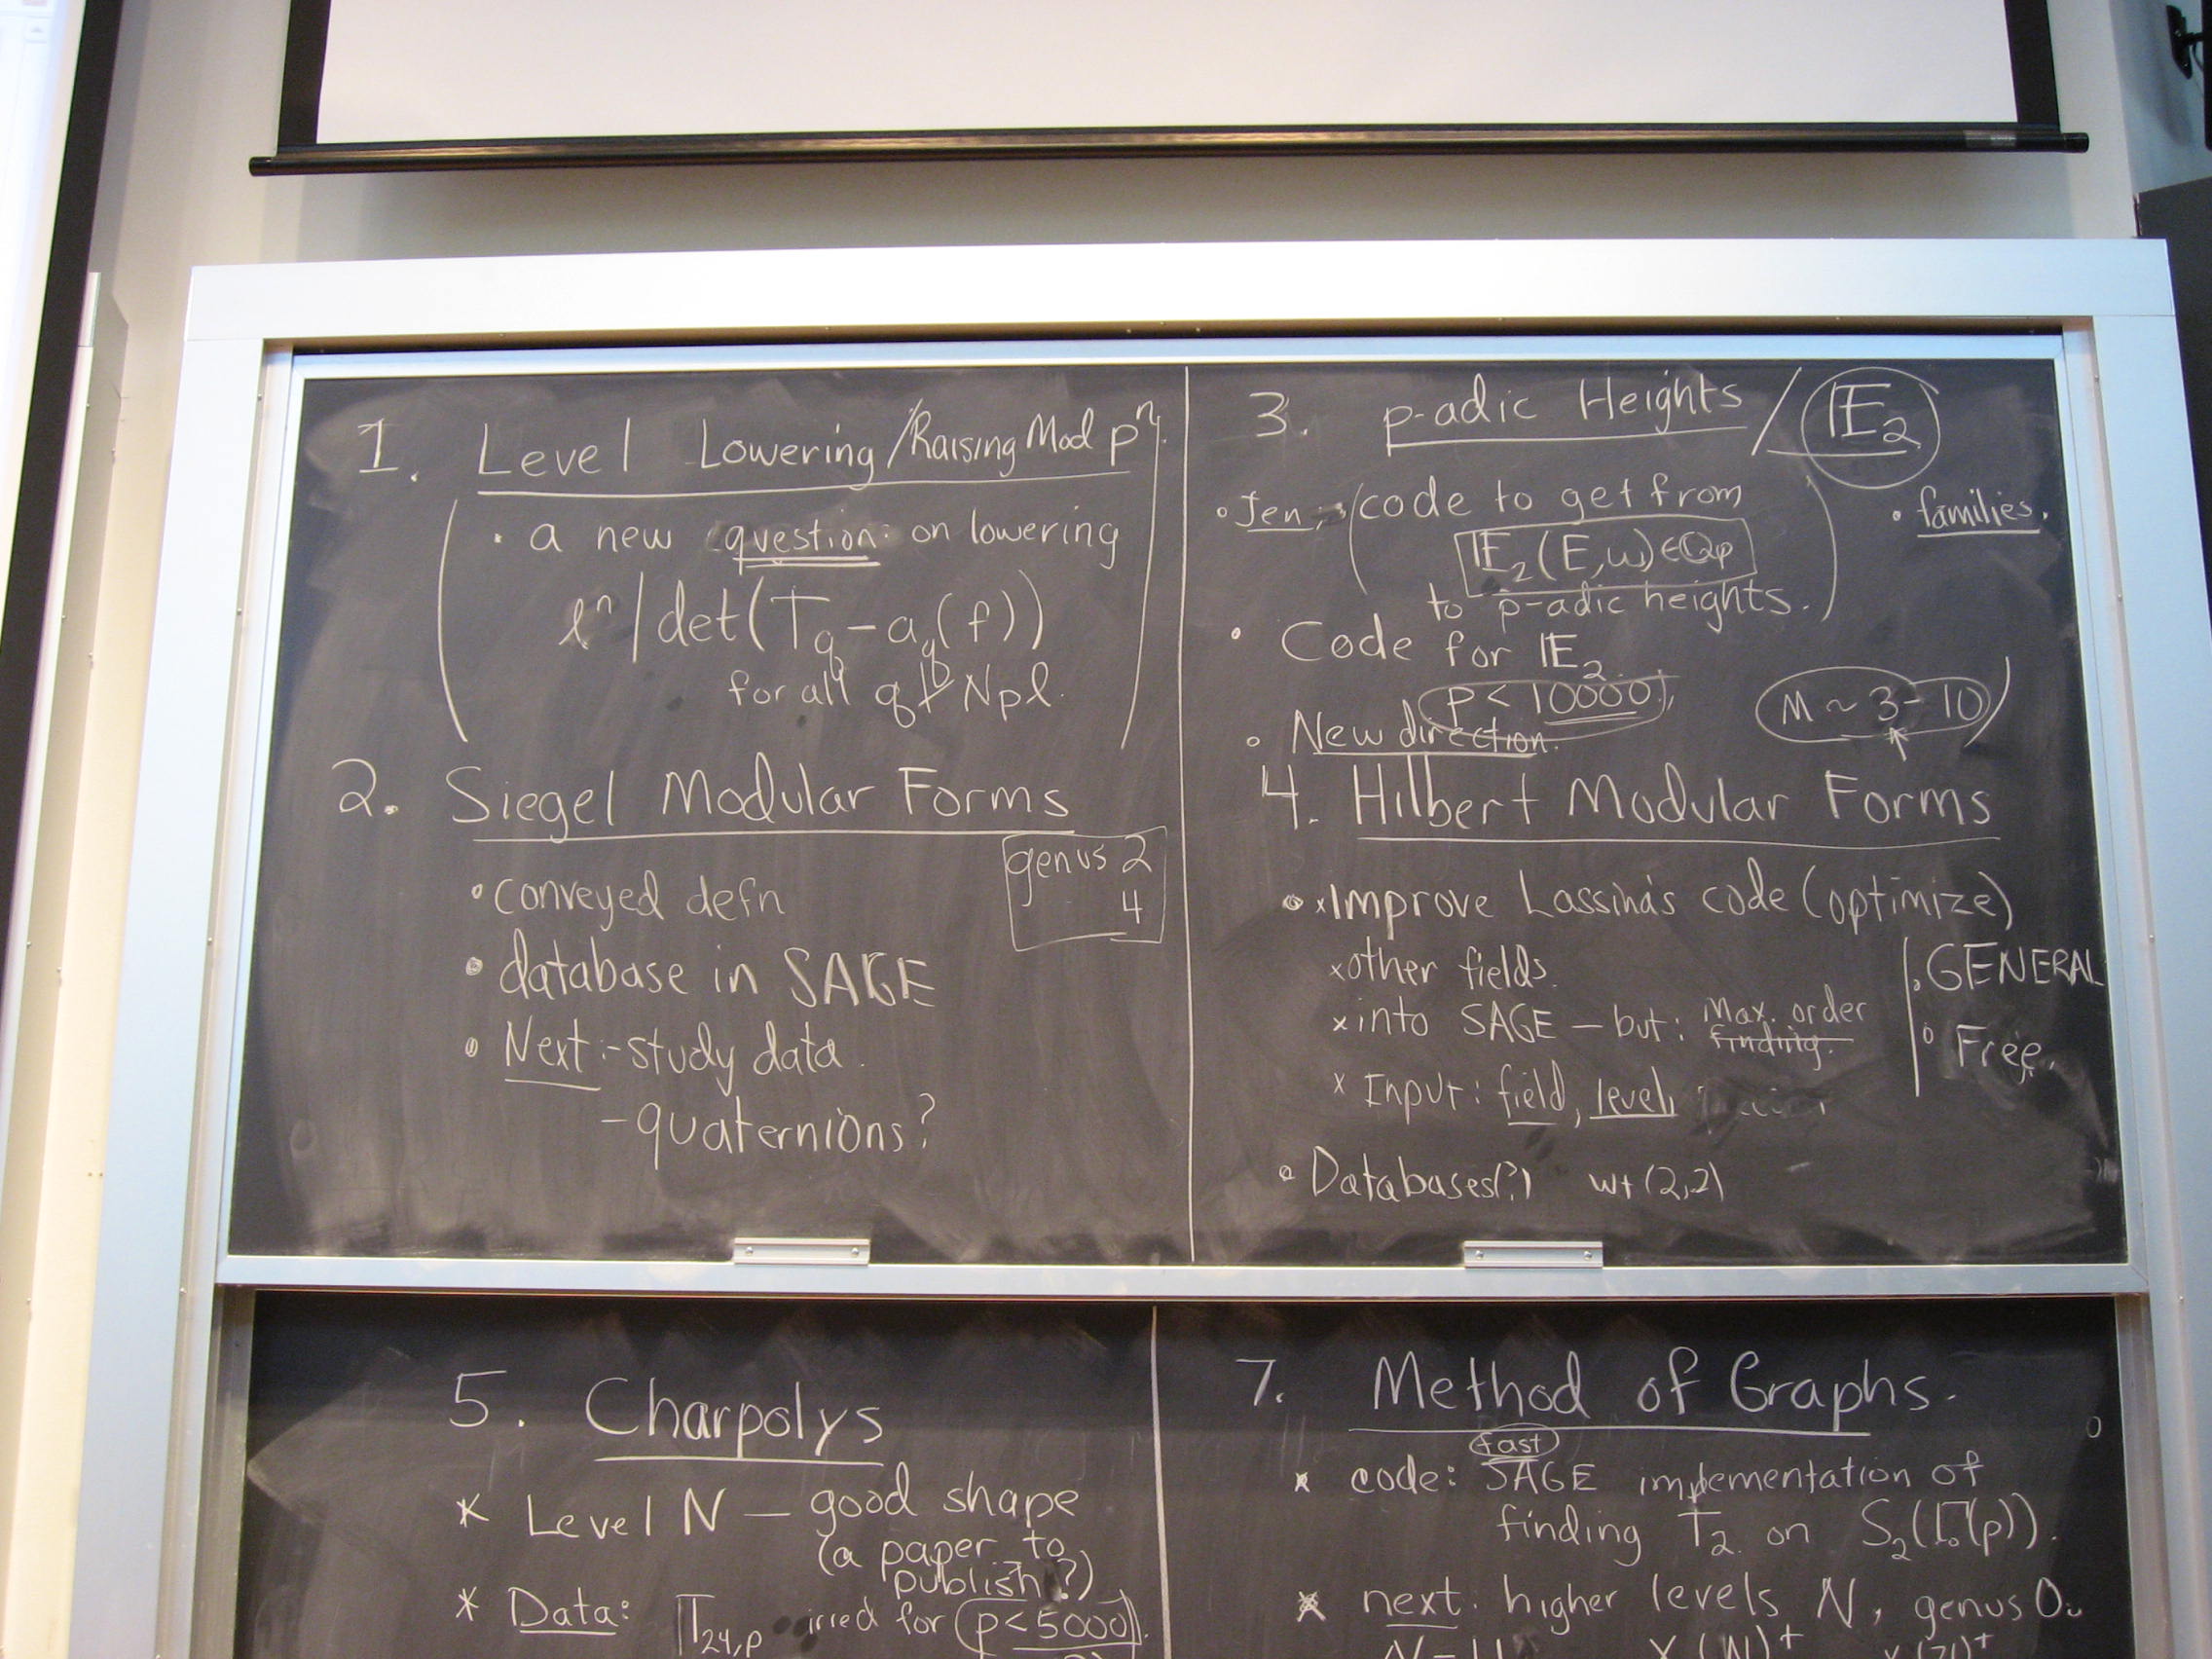 1. Level Lowering/Raising Mod pⁿ.
• a new question: on lowering
ℓⁿ | det(T_q - a_q(f))
for all q∤Npℓ.
2. Siegel Modular Forms
genus 2
4
• conveyed defn
• database in SAGE
• Next:-study data.
- quaternions?
3. p-adic Heights / 𝔼₂
• Jen (code to get from
𝔼₂(E,ω)∈ℚp
to p-adic heights.)
• families.
• Code for 𝔼₂
p < 10000, M ~ 3-10)
• New direction.
4. Hilbert Modular Forms
• × Improve Lassina's code (optimize)
× other fields.
× into SAGE – but: Max. order
finding.
× Input: field, level,
• GENERAL
• Free.
• Databases(?) wt (2,2)
5. Charpolys
* Level N – good shape
(a paper to
publish?)
* Data: T₂₄,p irred for p<5000.
7. Method of Graphs.
fast
* code: SAGE implementation of
finding T₂ on S₂(Γ₀(p)).
* next: higher levels N, genus 0.